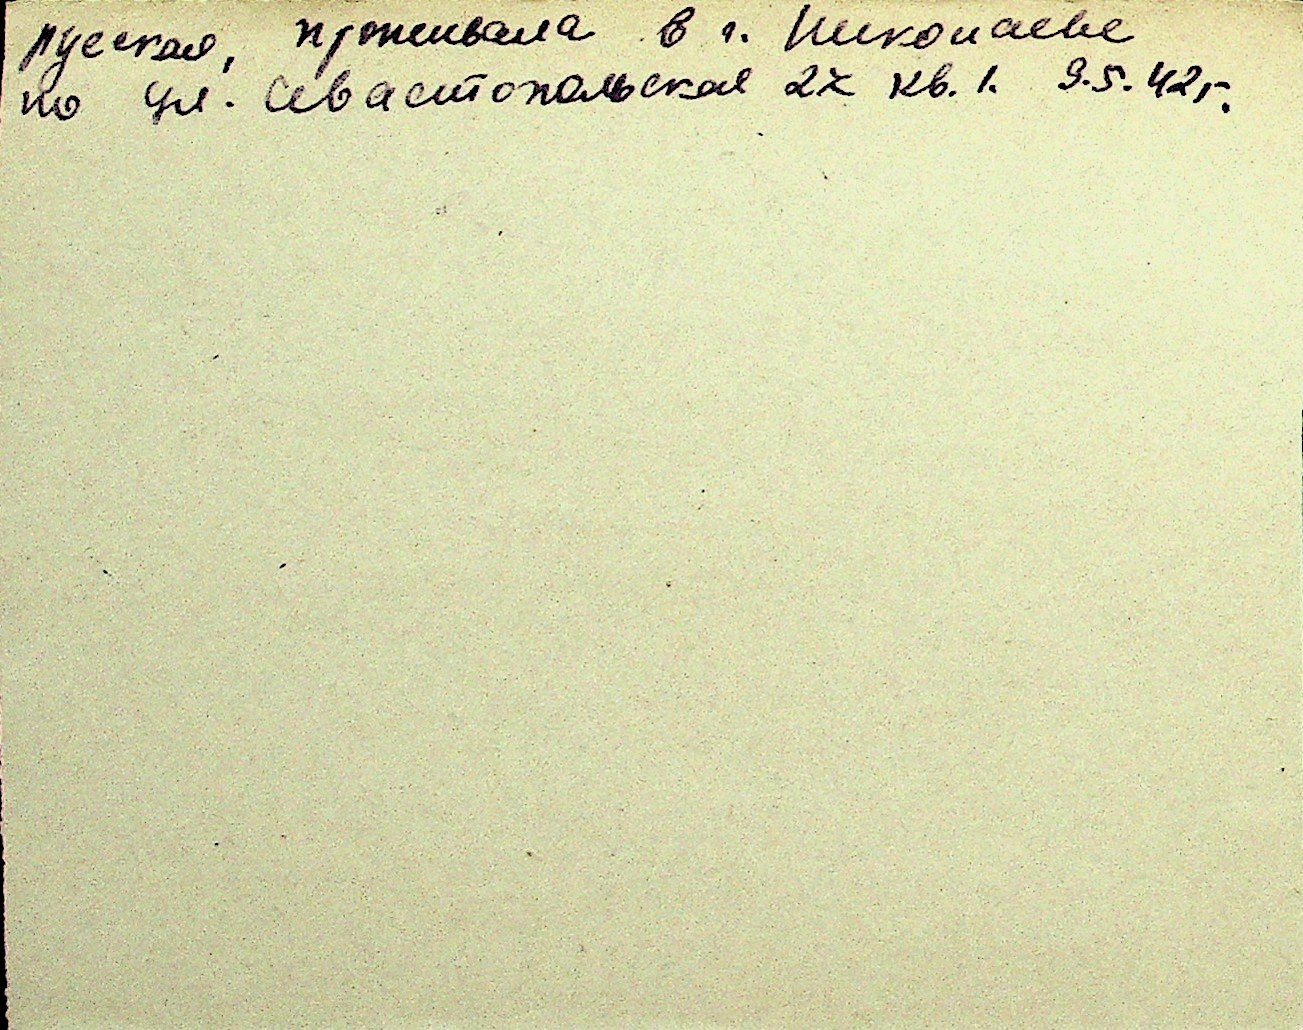 русская, проживала в г. Николаеве
по ул. Севастопольская кв. 1. 9.5.42г.